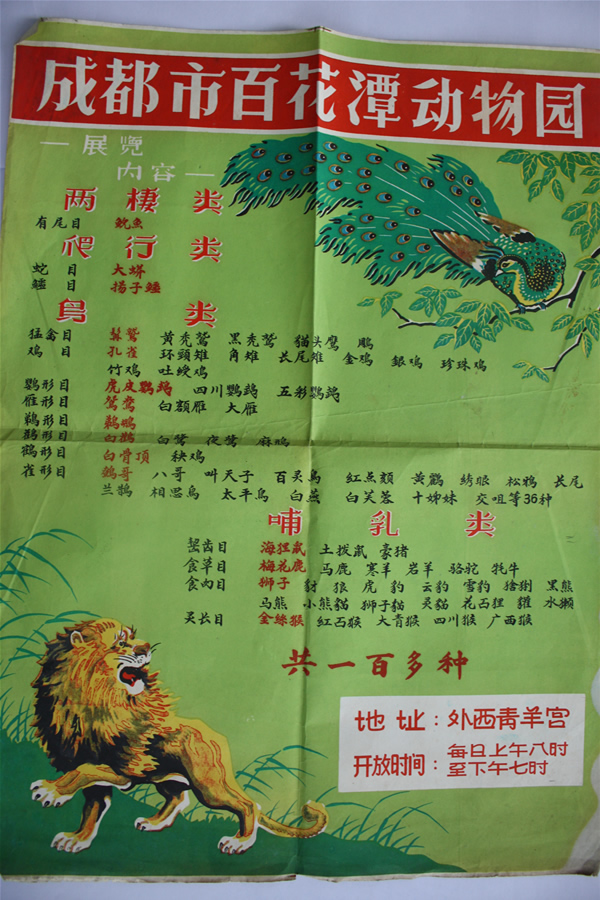 成都市百花潭动物园
—展覽
内容—
两棲类
有尾目 鲵鱼
爬行类
蛇目 大蟒
鱷目 扬子鱷
鸟类
猛禽目 髯鹫 黄秃鹫 黑秃鹫 貓头鹰 鵰
鸡目 孔雀 环頸雉 角雉 长尾雉 金鸡 銀鸡 珍珠鸡
竹鸡 吐绶鸡
鸚形目 虎皮鸚鵡 四川鸚鵡 五彩鸚鵡
雁形目 鴛鸯 白額雁 大雁
鹈形目 鹈鶘
鹳形目 白鹳 白鷺 夜鷺 麻鳽
鶴形目 白骨頂 秧鸡
雀形目 鷯哥 八哥 叫天子 百灵鳥 紅点頦 黄鸝 綉眼 松鸦 长尾
兰鵲 相思鳥 太平鳥 白燕 白芙蓉 十姊妹 交咀等36种
哺乳类
齧齿目 海狸鼠 土拨鼠 豪猪
食草目 梅花鹿 马鹿 寒羊 岩羊 骆駝 牦牛
食肉目 狮子 豺 狼 虎 豹 云豹 雪豹 猞猁 黑熊
马熊 小熊貓 狮子貓 灵貓 花面狸 貛 水獭
灵长目 金絲猴 紅面猴 大青猴 四川猴 广西猴
共一百多种
地址：外西青羊宫
开放时间：每日上午八时
至下午七时